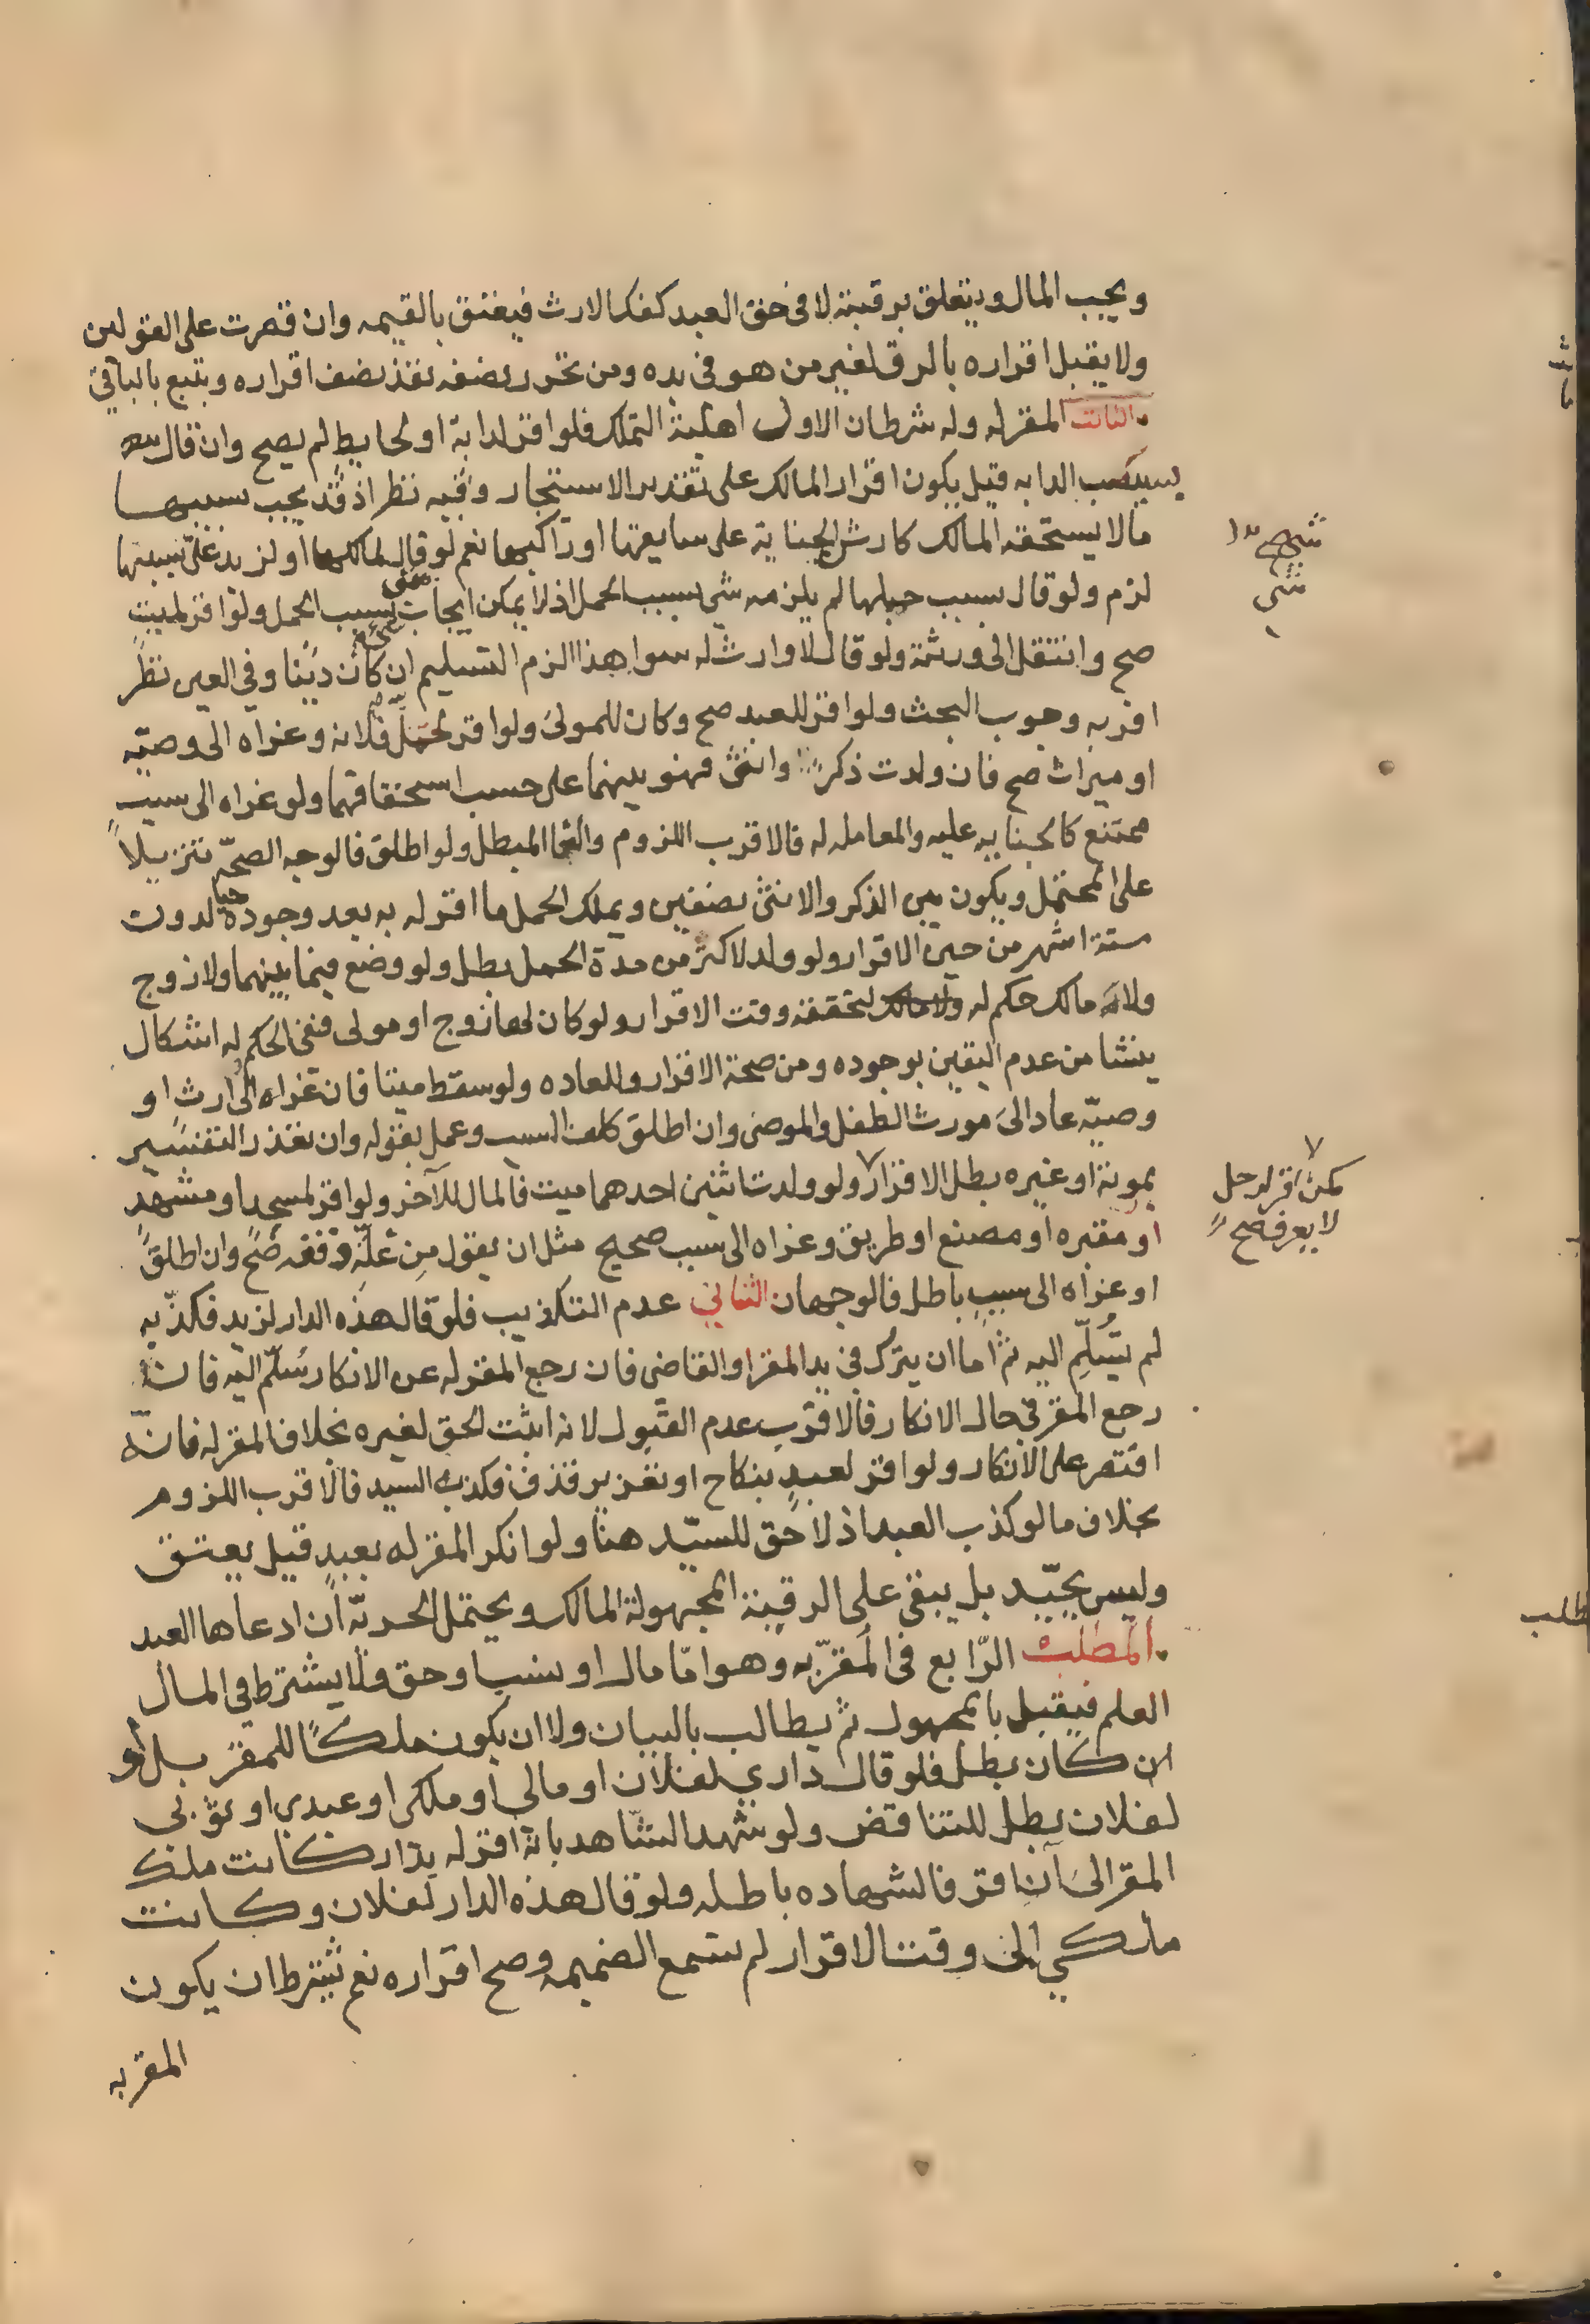 ويجب المال ويتعلق برقبته لا في حق العبد كفك الارث فيعتق بالقيمه وان قصرت على القولين
ولا يقبل اقراره بالرق لغير من هو في يده ومن تحرر نصفه نفذ نصف اقراره ويتبع بالباقي
المقر له وله شرطان الاول اهلية التملك فلو اقر لدابة او لحايط لم يصح وان قال
بسبب الدابه قيل يكون اقرار المالك على تقدير الاستيجار وفيه نظر اذ قد يجب بسببها
مالا يستحقه المالك كارش الجناية على سايقها او راكبها نعم لو قال لمالكها او لزيد علىّ بسببها
لزم ولو قال بسبب حملها لم يلزمه شي بسبب الحمل اذ لا يمكن ايجاب شي بسبب الحمل ولو اقر لميت
صح وانتقل الى ورثته ولو قال لا وارث له سوا هذا الزم التسليم ان كان دينا وفي العين نظر
اقربه وجوب البحث ولو اقر للعبد صح وكان للمولى ولو اقر لحمل فلانه وعزاه الى وصيّه
او ميراث صح فان ولدت ذكرا وانثى فهو بينهما على حسب استحقاقهما ولو عزاه الى سبب
ممتنع كالجنايه عليه والمعامله له فالاقرب اللزوم والغا المبطل ولو اطلق فالوجه الصحّه تنزيلاً
على المحتمل ويكون بين الذكر والانثى نصفين ويملك الحمل ما اقر له به بعد وجوده حيا لدون
ستة اشهر من حين الاقرار ولو ولد لاكثر من مدة الحمل بطل ولو وضع فيما بينهما ولا زوج
ولا مالك حكم له لتحققه وقت الاقرار ولو كان لها زوج او مولى ففي الحكم له اشكال
ينشا من عدم اليقين بوجوده ومن صحة الاقرار وللعاده ولو سقط ميتا فان عزاه الى ارث او
وصيّه عاد الى مورث الطفل والموصى وان اطلق كلف السبب وعمل بقوله وان تعذر التفسير
بموته او غيره بطل الاقرار ولو ولدت اثنين احدهما ميت فالمال للاخر ولو اقر لمسجد او مشهد
او مقبره او مصنع او طريق وعزاه الى سبب صحيح مثل ان يقول من غلّة وقفه صح وان اطلق
او عزاه الى سبب باطل فالوجهان الثاني عدم التكذيب فلو قال هذه الدار لزيد فكذّبه
لم يُسَلّم اليه ثم اما ان يترك في يد المقر او القاضي فان رجع المقر له عن الانكار سُلّم اليه فان
رجع المقر في حال الانكار فالاقرب عدم القبول لانه اثبت الحق لغيره بخلاف المقر له فانّه
اقتصر على الانكار ولو اقر لعبدٍ بنكاح او تعزير قذف فكذبه السيد فالاقرب اللزوم
بخلاف ما لو كذب العبد اذ لا حق للسيّد هنا ولو انكر المقر له بعبدٍ قيل يعتق
وليس بجيّد بل يبقى على الرقية المجهولة المالك ويحتمل الحريّة ان ادعاها العبد
المطلب الرّابع في المقرّ به وهو امّا مال او نسب او حق ولا يشترط في المال
العلم فيقبل بالمجهول ثم يطالب بالبيان ولا ان يكون ملكًا للمقر بل لو
كان بطل فلو قال داري لفلان او مالي او ملكي او عبدي او ثوبي
لفلان بطل للتناقض ولو شهد الشّاهد بانه اقر له بدار كانت ملك
المقر الى ان اقر فالشهاده باطله ولو قال هذه الدار لفلان وكانت
ملكي الى وقت الاقرار لم تسمع الضميمه وصح اقراره نعم يشترط ان يكون
المقر به
شي
كمن اقر لرجل
لا يعرف صح